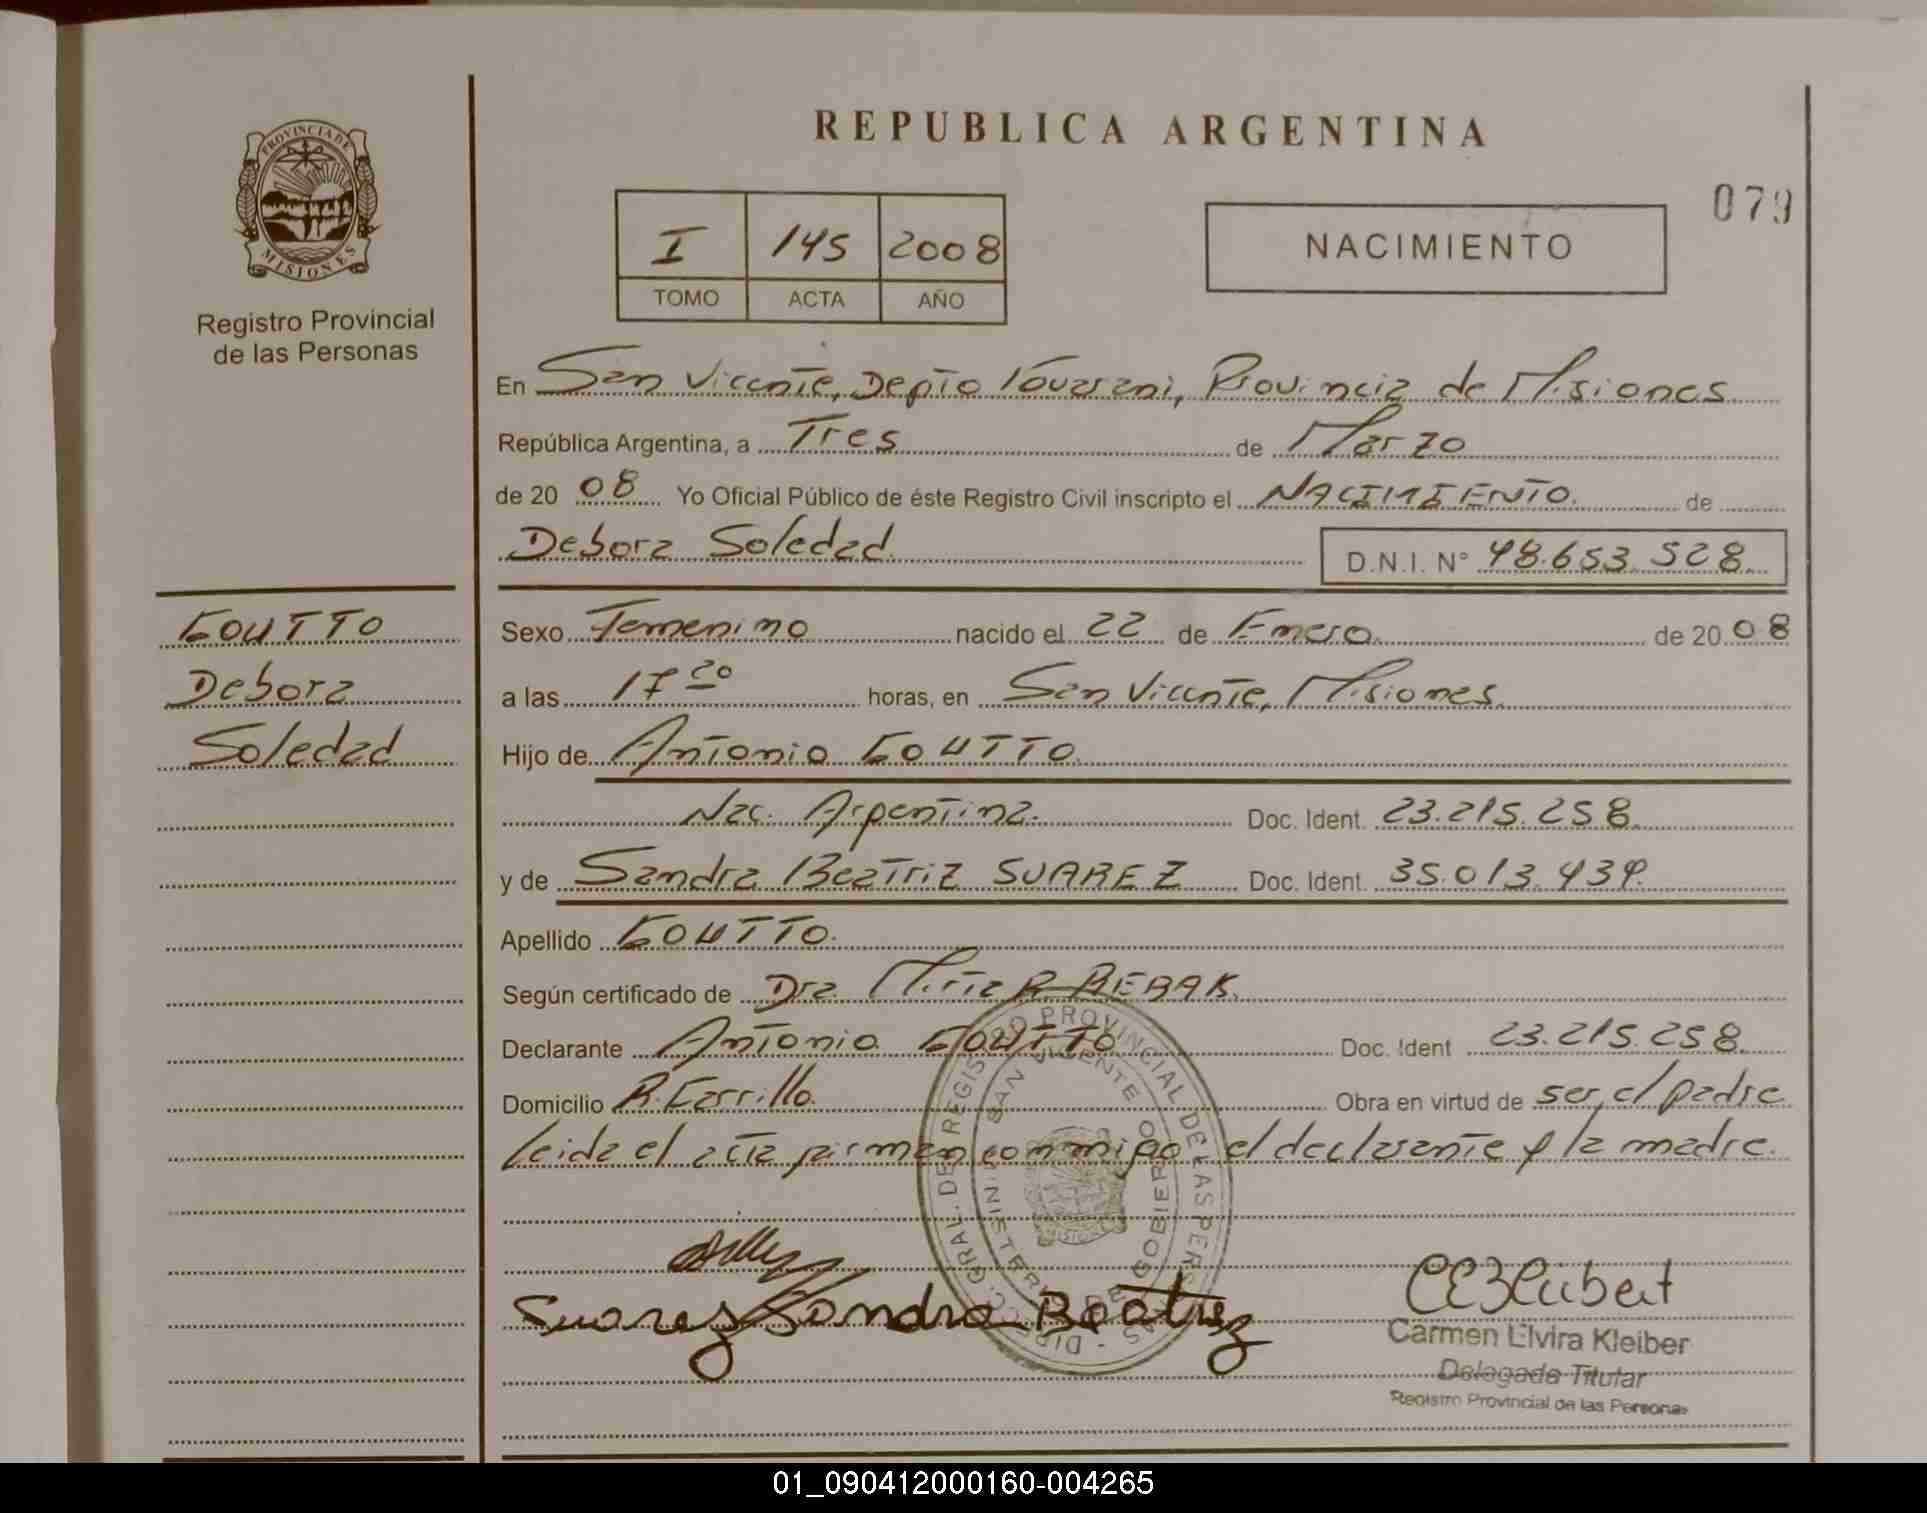 PROVINCIA DE
MISIONES
Registro Provincial
de las Personas
REPUBLICA ARGENTINA
079
I 145 2008
TOMO ACTA AÑO
NACIMIENTO
En San Vicente, Depto Guarani, Provincia de Misiones
República Argentina, a Tres de Marzo
de 2008 Yo Oficial Público de éste Registro Civil inscripto el NACIMIENTO. de
Debora Soledad.
D.N.I. N° 48.653.528.
GOUTTO
Debora
Soledad
Sexo Femenino nacido el 22 de Enero. de 2008
a las 17 20 horas, en San Vicente, Misiones.
Hijo de Antonio GOUTTO.
Nac. Argentina. Doc. Ident. 23.215.258.
y de Sandra Beatriz SUAREZ Doc. Ident. 35.013.439.
Apellido GOUTTO.
Según certificado de Dra.
Declarante Antonio GOUTTO Doc. Ident 23.215.258.
Domicilio R. Carrillo. Obra en virtud de ser el padre
Leida el acta firman conmigo el declarante y la madre.
DIREC. GRAL. DE REGISTRO PROVINCIAL DE LAS PERSONAS
SAN VICENTE
MINISTERIO DE GOBIERNO
MISIONES
Suarez Sandra Beatriz
Carmen Elvira Kleiber
Delegada Titular
Registro Provincial de las Personas
01_090412000160-004265